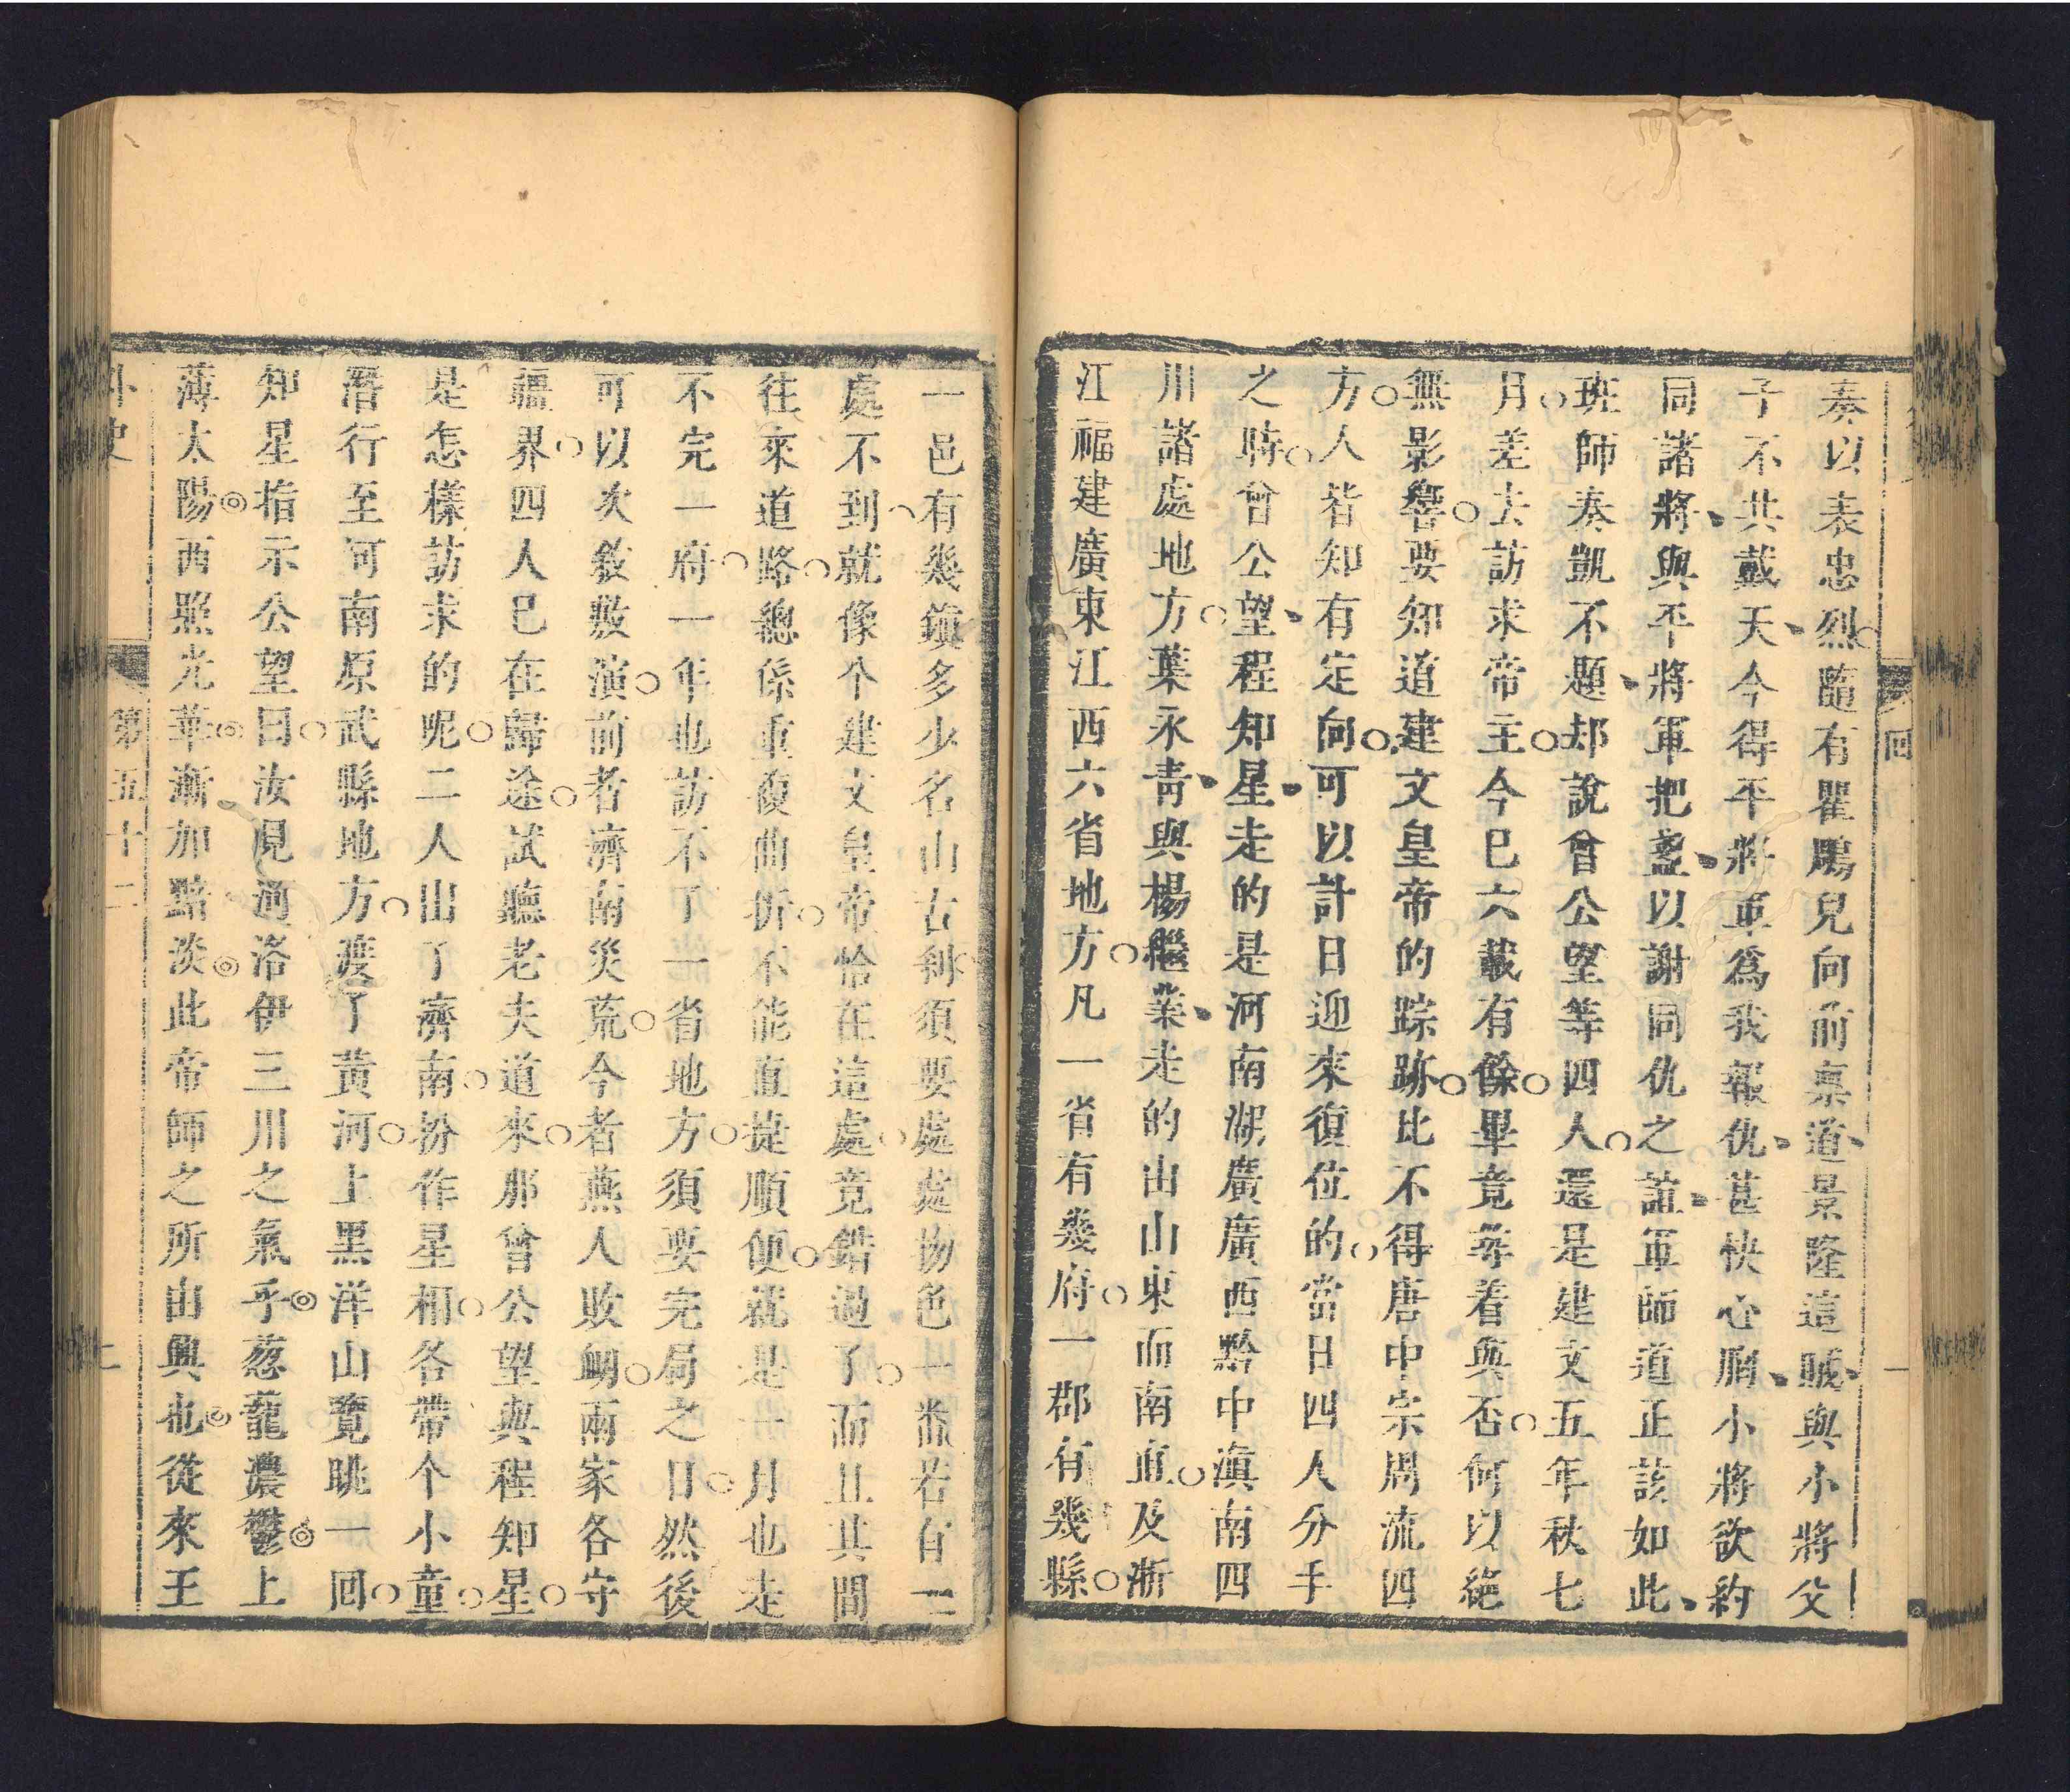 奏以表忠烈隨有瞿鵰兒向前稟道景隆這賊與小將父
子不共戴天今得平將軍爲我報仇甚快心胸小將欲約
同諸將與平將軍把盞以謝同仇之誼軍師道正該如此
班師奏凱不題却說曾公望等四人還是建文五年秋七
月差去訪求帝主今已六載有餘畢竟尋着與否何以絶
無影響要知道建文皇帝的踪跡比不得唐中宗周流四
方人皆知有定向可以計日迎來復位的當日四人分手
之時曾公望程知星走的是河南湖廣廣西黔中滇南四
川諸處地方葉永靑與楊繼業走的山山東而南直及浙
江福建廣東江西六省地方凡一省有幾府一郡有幾縣
一邑有幾鎮多少名山古刹須要處處物色一番若有一
處不到就像个建文皇帝恰在這處竟錯過了而且其間
往來道路總係重複曲折不能直捷順便就是一月也走
不完一府一年也訪不了一省地方須要完局之日然後
可以次敘敷演前者濟南災荒今者燕人敗衂兩家各守
疆界四人已在歸途試聽老夫道來那曾公望與程知星
是怎樣訪求的呢二人出了濟南扮作星相各帶个小童
潛行至河南原武縣地方渡了黃河上黑洋山覽眺一回
知星指示公望曰汝見河洛伊三川之氣乎葱蘢濃鬱上
薄太陽西照光華漸加黯淡此帝師之所由興也從來王
外史
第五十二
回